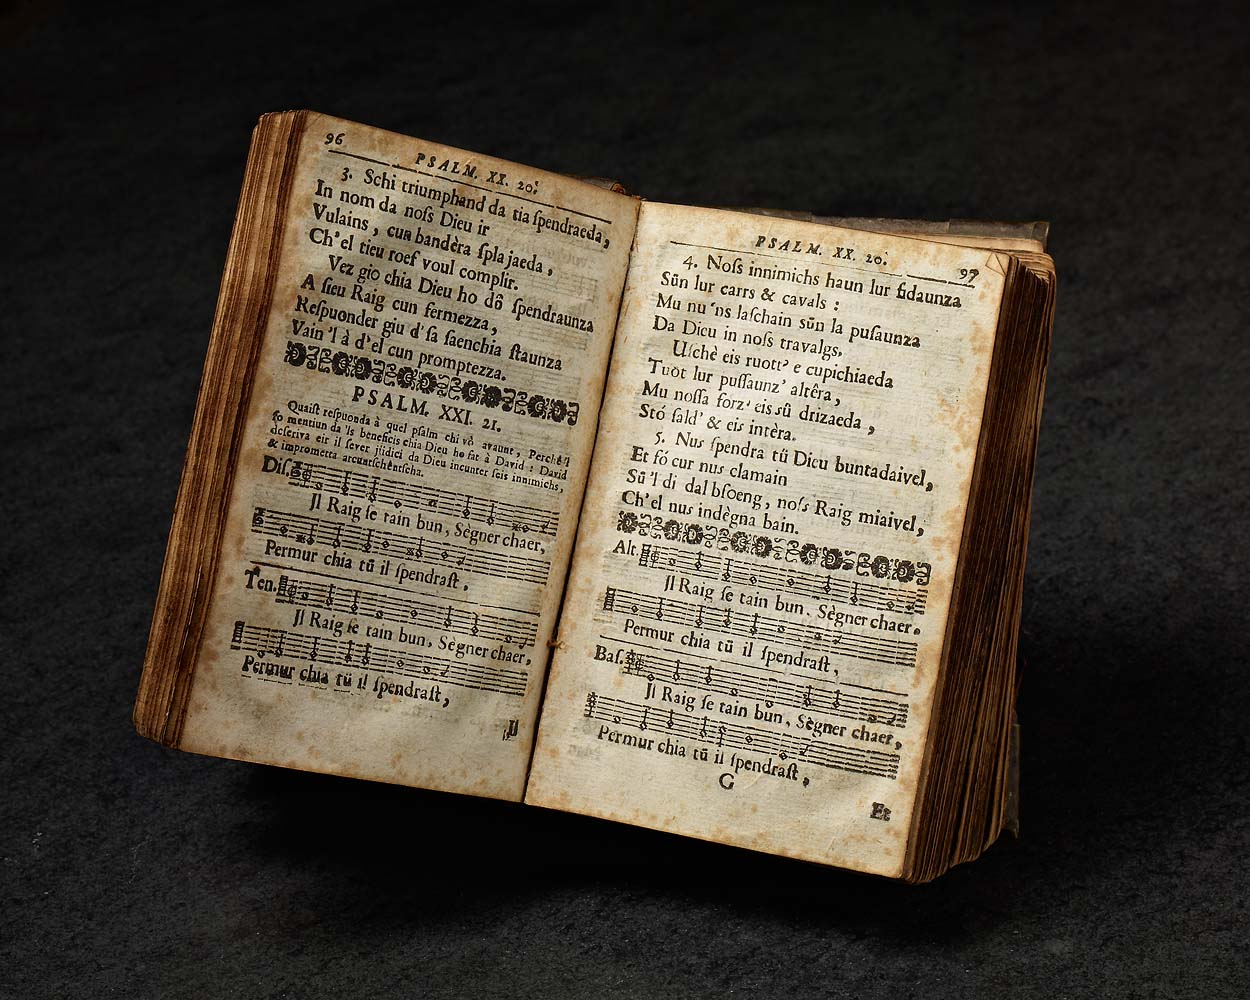 96
PSALM. XX. 20.
3. Schi triumphand da tia ſpendraeda,
In nom da noſs Dieu ir
Vulains, cun bandèra ſplajaeda,
Ch'el tieu roef voul complir.
Vez gio chia Dieu ho dô ſpendraunza
A ſieu Raig cun fermezza,
Reſpuonder giu d'ſa ſaenchia ſtaunza
Vain 'l à d'el cun promptezza.
PSALM. XXI. 21.
Quaiſt reſpuonda à quel pſalm chi vò avaunt, Perche'l
fo mentiun da 'ls beneficis chia Dieu ho fat à David: David
deſeriva eir il ſever jüdici da Dieu incunter ſeis innimichs,
& imprometta
Diſ.
Jl Raig ſe tain bun, Sègner chaer,
Permur chia tü il ſpendraſt,
Ten.
Jl Raig ſe tain bun, Sègner chaer,
Permur chia tü il ſpendraſt,
Jl
PSALM. XX. 20.
97
4. Noſs innimichs haun lur fidaunza
Sün lur carrs & cavals:
Mu nu 'ns laſchain sün la puſaunza
Da Dieu in noſs travalgs.
Uſchè eis ruott' e cupichiaeda
Tuot lur puſſaunz' altêra,
Mu noſſa forz' eis ſü drizaeda,
Stó ſald' & eis intèra.
5. Nus ſpendra tü Dieu buntadaivel,
Et fó cur nus clamain
Sü 'l di dal bſoeng, noſs Raig miaivel,
Ch'el nus indègna bain.
Alt.
Jl Raig ſe tain bun, Sègner chaer,
Permur chia tü il ſpendraſt,
Baſ.
Jl Raig ſe tain bun, Sègner chaer,
Permur chia tü il ſpendraſt,
G
Et